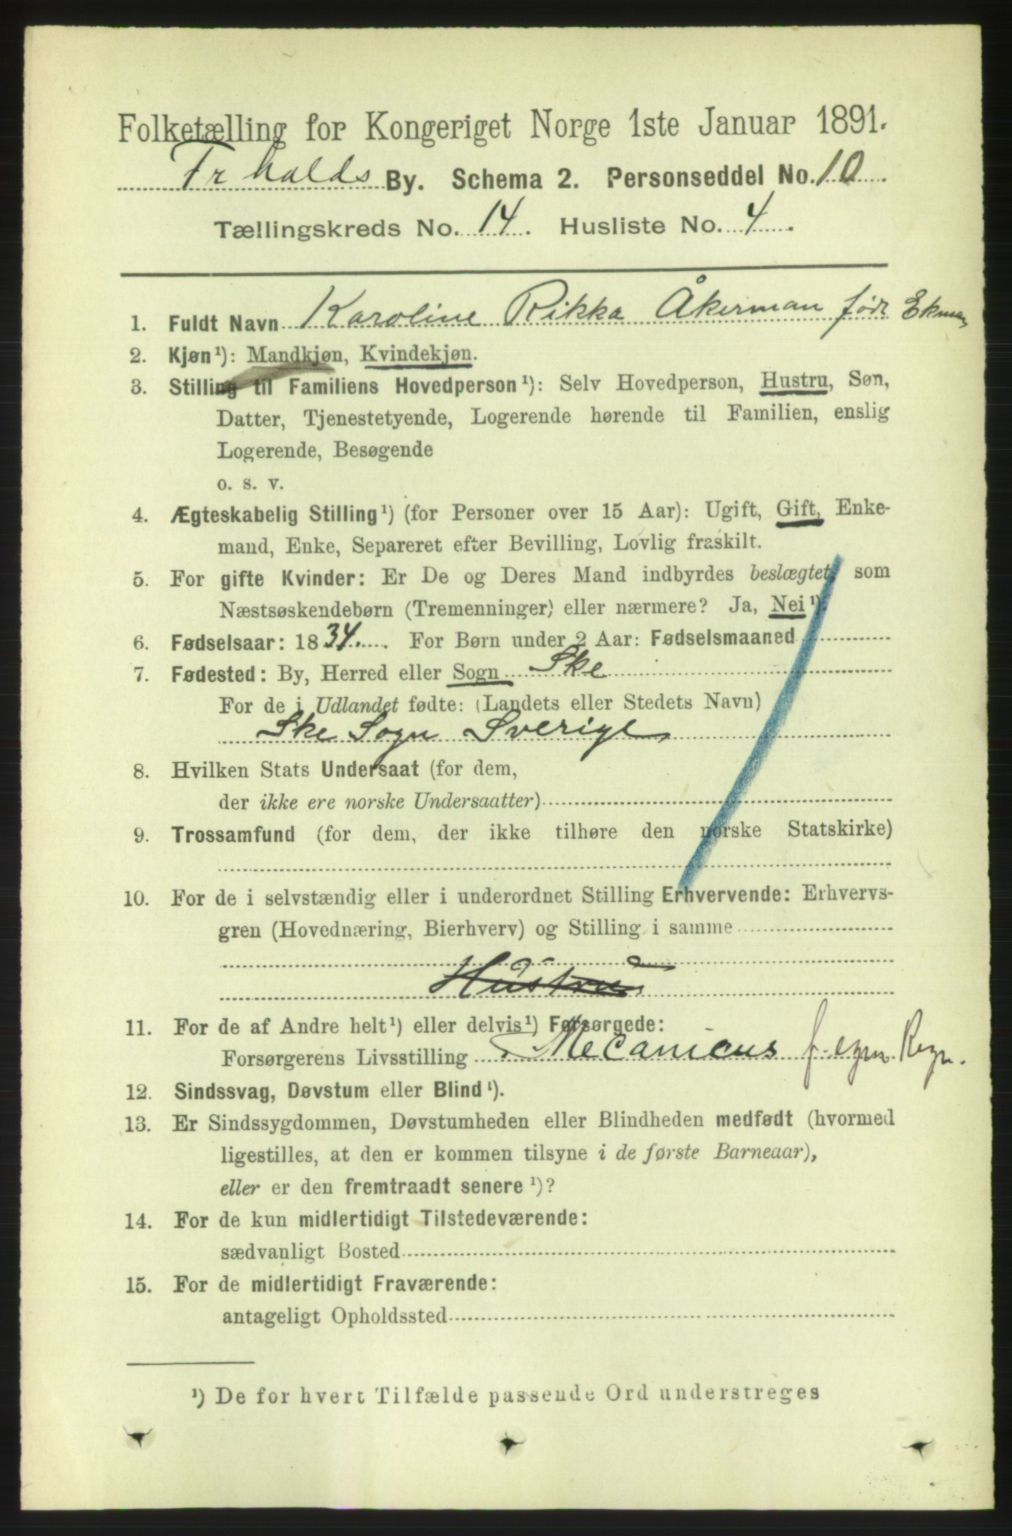 Folketælling for Kongeriget Norge 1ste Januar 1891.
Fr halds By. Schema 2. Personseddel No. 10.
Tællingskreds No. 14. Husliste No. 4.
1. Fuldt Navn Karoline Rikka Åkerman født Ekman
2. Kjøn¹): Mandkjøn, Kvindekjøn.
3. Stilling til Familiens Hovedperson¹): Selv Hovedperson, Hustru, Søn,
Datter, Tjenestetyende, Logerende hørende til Familien, enslig
Logerende, Besøgende
o. s. v.
4. Ægteskabelig Stilling¹) (for Personer over 15 Aar): Ugift, Gift, Enke-
mand, Enke, Separeret efter Bevilling, Lovlig fraskilt.
5. For gifte Kvinder: Er De og Deres Mand indbyrdes beslægtet, som
Næstsøskendebørn (Tremenninger) eller nærmere? Ja, Nei¹).
6. Fødselsaar: 1834. For Børn under 2 Aar: Fødselsmaaned
7. Fødested: By, Herred eller Sogn Ske
For de i Udlandet fødte: (Landets eller Stedets Navn)
Ske Sogn Sverige
8. Hvilken Stats Undersaat (for dem,
der ikke ere norske Undersaatter)
9. Trossamfund (for dem, der ikke tilhøre den norske Statskirke)
10. For de i selvstændig eller i underordnet Stilling Erhvervende: Erhvervs-
gren (Hovednæring, Bierhverv) og Stilling i samme
Hustru
11. For de af Andre helt¹) eller delvis¹) Forsørgede:
Forsørgerens Livsstilling Mecanicus f. egen Regn.
12. Sindssvag, Døvstum eller Blind¹).
13. Er Sindssygdommen, Døvstumheden eller Blindheden medfødt (hvormed
ligestilles, at den er kommen tilsyne i de første Barneaar),
eller er den fremtraadt senere¹)?
14. For de kun midlertidigt Tilstedeværende:
sædvanligt Bosted
15. For de midlertidigt Fraværende:
antageligt Opholdssted
¹) De for hvert Tilfælde passende Ord understreges